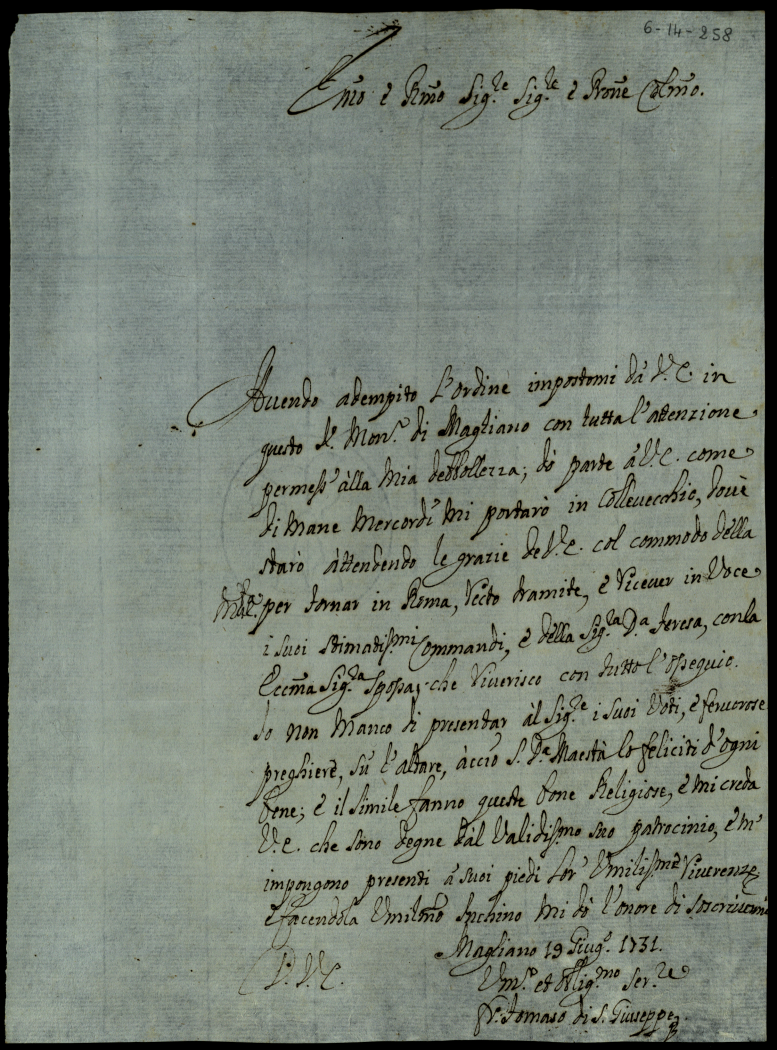 6-14-258
Emo è Rmo Sig.re Sig.re è Prone Colmo.
Avendo adempito l'ordine impostomi dà V.E. in
questo V. Mon.o di Magliano con tutta l'attenzione
permess' àlla mia debbolezza; dò parte à V.E. come
di mane Mercordì mi portarò in Collevecchio, dove
starò àttendendo le grazie de V.E. col commodo della
per tornar in Roma, retto tramite, è ricever in voce
i suoi stimatiss.mi Commandi, è della Sig.ra D.a Teresa, con la
Eccma Sig.ra Sposa, che riverisco con tutto l'ossequio.
Io non manco di presentar àl Sig.re i suoi voti, è fervorose
preghiere, sù l'altare, àcciò S. D.a Maestà lo feliciti d'ogni
bene; è il simile fanno queste bone Religiose, è mi creda
V.E. che sono degne dal validissmo suo patrocinio, è m'
impongono presenti à suoi piedi lor' umilissme riverenze,
è facendola umilmo inchino mi dò l'onore di soscrivermi
Magliano 19 Giug.o 1731.
D. V.E.
Um.o et obblig.mo Ser.re
Fr. Tomaso di S. Giuseppe